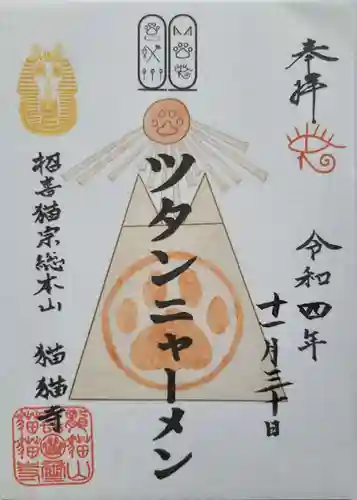 奉拝
令和四年
十一月三十日
ツタンニャーメン
招喜猫宗総本山
猫猫寺